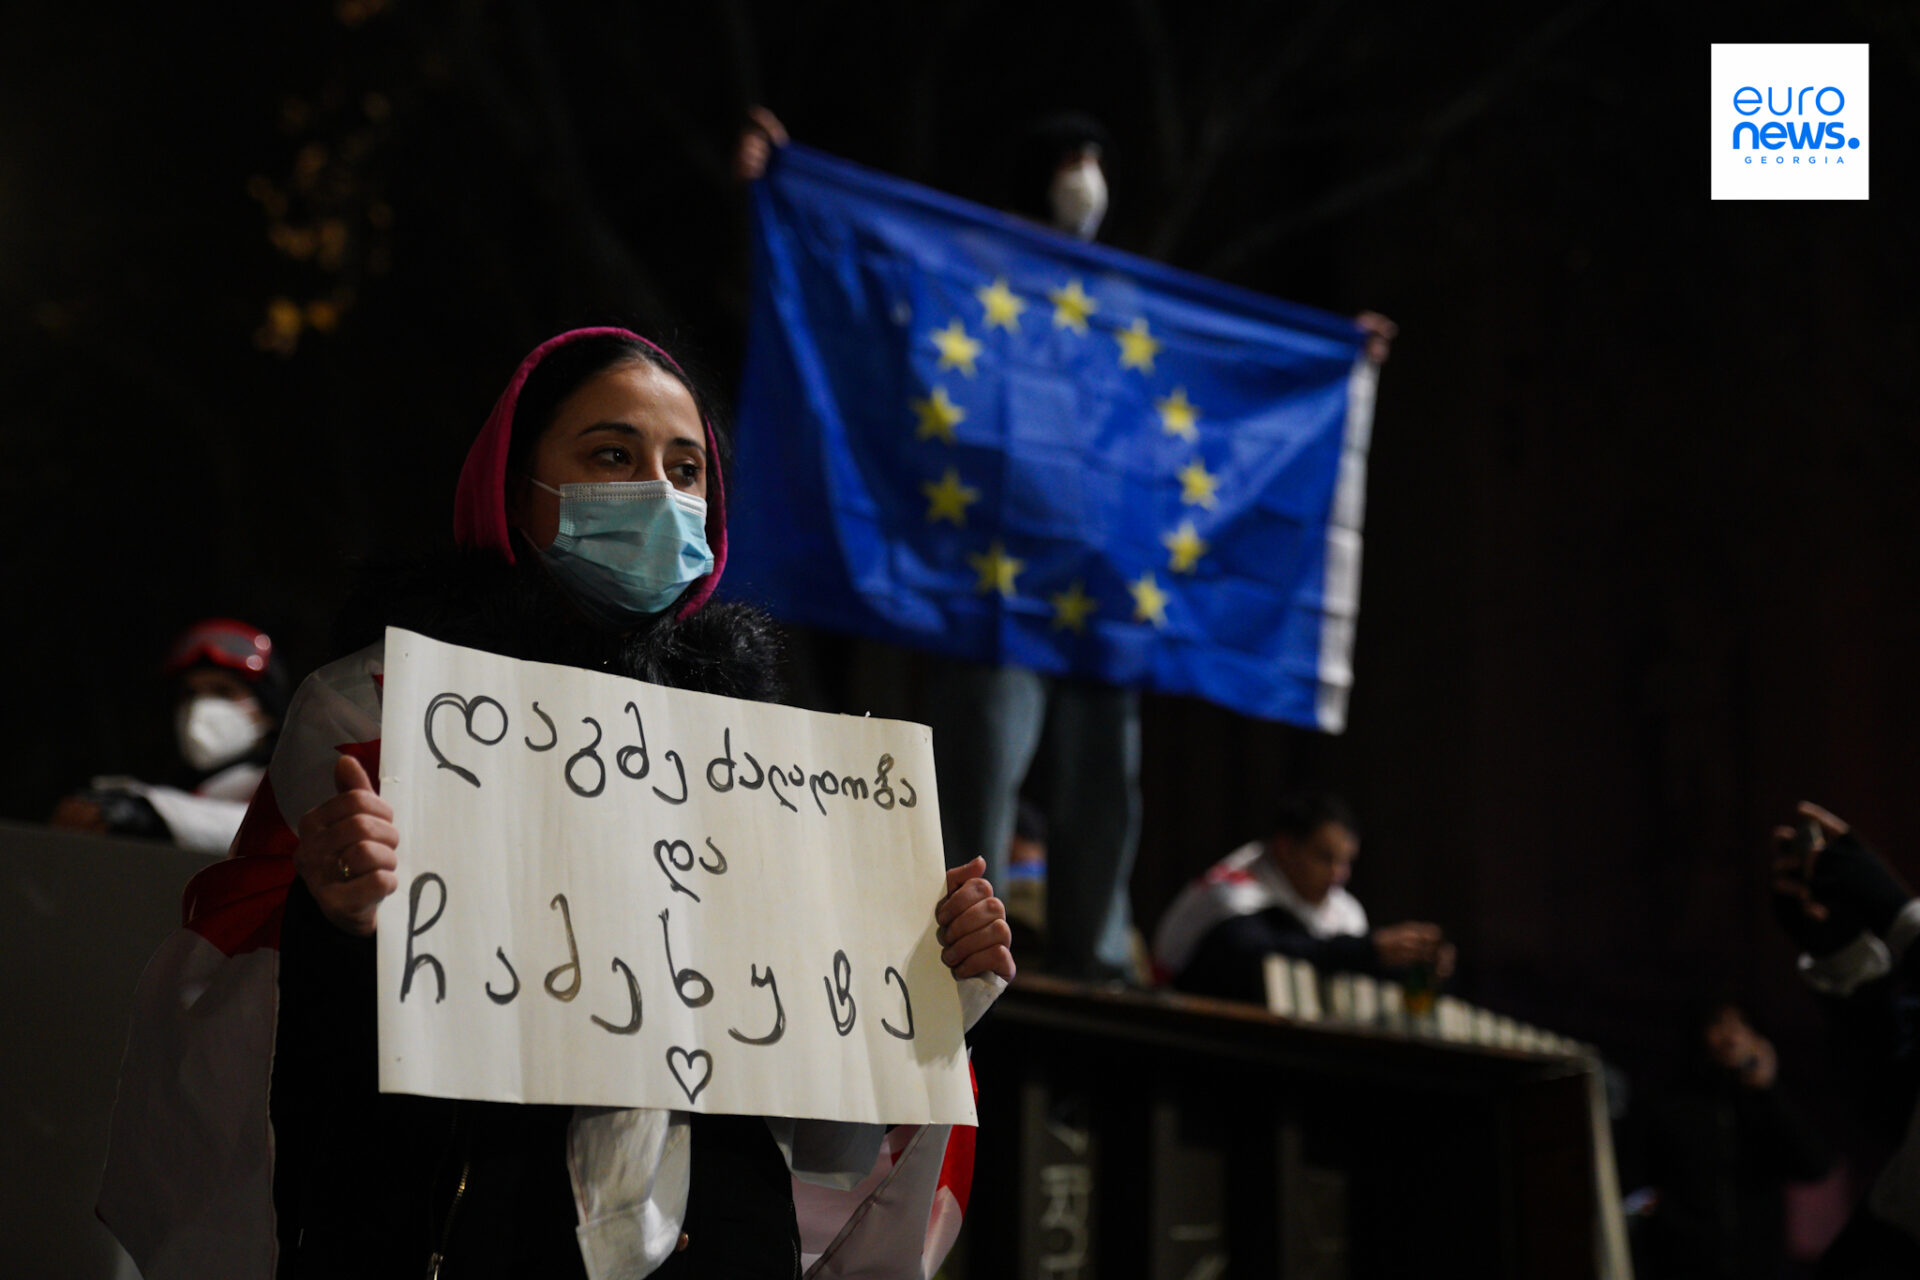 euro
news.
GEORGIA
დაგმე ძალადობა
და
ჩამეხუტე